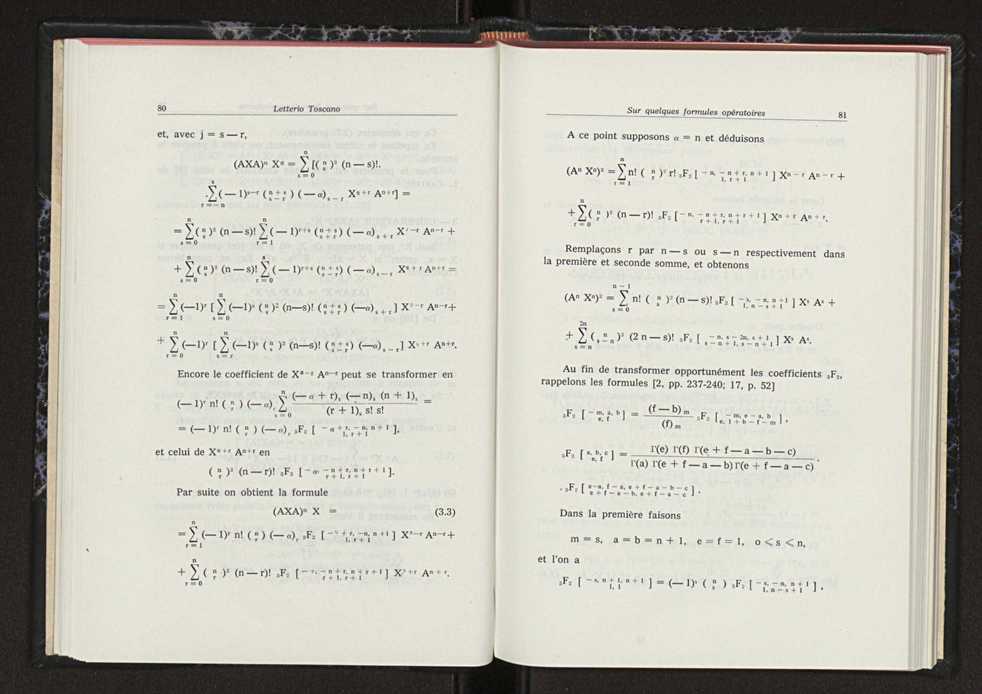 80 Letterio Toscano
et, avec j = s — r,
(AXA)ⁿ Xᵅ = ∑_{s=0}^{n} [(n s)² (n — s)!.
.∑_{r=—n}^{s} (— 1)^{s—r} (n+s s—r) (—α)_{s—r} X^{α+r} A^{n+r}] =
= ∑_{s=0}^{n} (n s)² (n — s)! ∑_{r=1}^{n} (— 1)^{r+s} (n+s s+r) (— α)_{s+r} X^{α—r} A^{n—r} +
+ ∑_{s=0}^{n} (n s)² (n — s)! ∑_{r=0}^{s} (— 1)^{r+s} (n+s s—r) (— α)_{s—r} X^{α+r} A^{n+r} =
= ∑_{r=1}^{n} (—1)^r [∑_{s=0}^{n} (—1)^s (n s)² (n—s)! (n+s s+r) (—α)_{s+r}] X^{α—r} A^{n—r} +
+ ∑_{r=0}^{n} (—1)^r [∑_{s=r}^{n} (—1)^s (n s)² (n—s)! (n+s s—r) (—α)_{s—r}] X^{α+r} A^{n+r}.
Encore le coefficient de X^{α—r} A^{n—r} peut se transformer en
(— 1)^r n! (n r) (— α)_r ∑_{s=0}^{n} (— α + r)_s (— n)_s (n + 1)_s / (r + 1)_s s! s! =
= (— 1)^r n! (n r) (— α)_r ₃F₂ [— α + r, — n, n + 1 / 1, r + 1],
et celui de X^{α+r} A^{n+r} en
(n r)² (n — r)! ₃F₂ [— α, — n + r, n + r + 1 / r + 1, r + 1].
Par suite on obtient la formule
(AXA)ⁿ X = (3.3)
= ∑_{r=1}^{n} (— 1)^r n! (n r) (— α)_r ₃F₂ [— α + r, —n, n + 1 / 1, r + 1] X^{α—r} A^{n—r} +
+ ∑_{r=0}^{n} (n r)² (n — r)! ₃F₂ [— α, — n + r, n + r + 1 / r + 1, r + 1] X^{α+r} A^{n+r}.
Sur quelques formules opératoires 81
A ce point supposons α = n et déduisons
(Aⁿ Xⁿ)² = ∑_{r=1}^{n} n! (n r)² r! ₃F₂ [— n, — n + r, n + 1 / 1, r + 1] X^{n—r} A^{n—r} +
+ ∑_{r=0}^{n} (n r)² (n — r)! ₃F₂ [— n, — n + r, n + r + 1 / r + 1, r + 1] X^{n+r} A^{n+r}.
Remplaçons r par n — s ou s — n respectivement dans
la première et seconde somme, et obtenons
(Aⁿ Xⁿ)² = ∑_{s=0}^{n—1} n! (n s)² (n — s)! ₃F₂ [—s, —n, n + 1 / 1, n — s + 1] X^s A^s +
+ ∑_{s=n}^{2n} (n s—n)² (2 n — s)! ₃F₂ [— n, s — 2n, s + 1 / s — n + 1, s — n + 1] X^s A^s.
Au fin de transformer opportunément les coefficients ₃F₂,
rappelons les formules [2, pp. 237-240; 17, p. 52]
₃F₂ [— m, a, b / e, f] = (f — b)_m / (f)_m ₃F₂ [— m, e — a, b / e, 1 + b — f — m],
₃F₂ [a, b, c / e, f] = Γ(e) Γ(f) Γ(e + f — a — b — c) / Γ(a) Γ(e + f — a — b) Γ(e + f — a — c) .
. ₃F₂ [e—a, f — a, e + f — a — b — c / e + f — a — b, e + f — a — c].
Dans la première faisons
m = s, a = b = n + 1, e = f = 1, o ⩽ s ⩽ n,
et l'on a
₃F₂ [— s, n + 1, n + 1 / 1, 1] = (— 1)^s (n s) ₃F₂ [— s, — n, n + 1 / 1, n — s + 1],